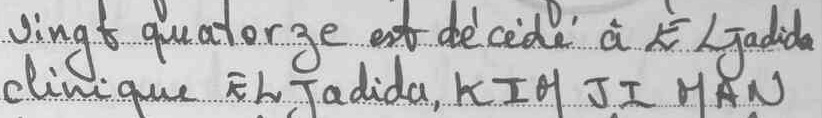 vingt quatorze est décédé à EL Jadida
clinique EL Jadida, KIM JI MAN